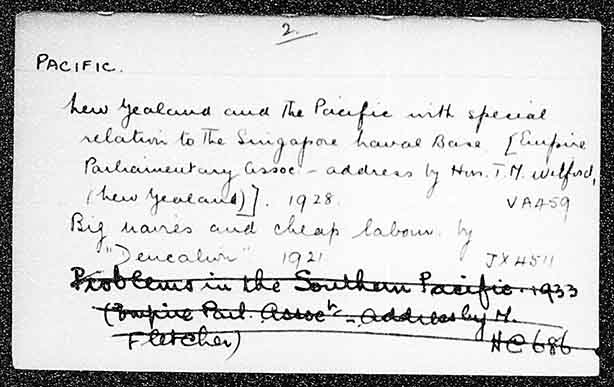 2.
PACIFIC.
New Zealand and the Pacific with special
relation to the Singapore Naval Base. [Empire
Parliamentary Assoc. - address by Hon. T. M. Wilford,
(New Zealand)]. 1928. VA459
Big navies and cheap labour. by
"Deucalion" 1921 JX4511
Problems in the Southern Pacific. 1933
(Empire Parl. Assocn - address by M.
Fletcher) HC686